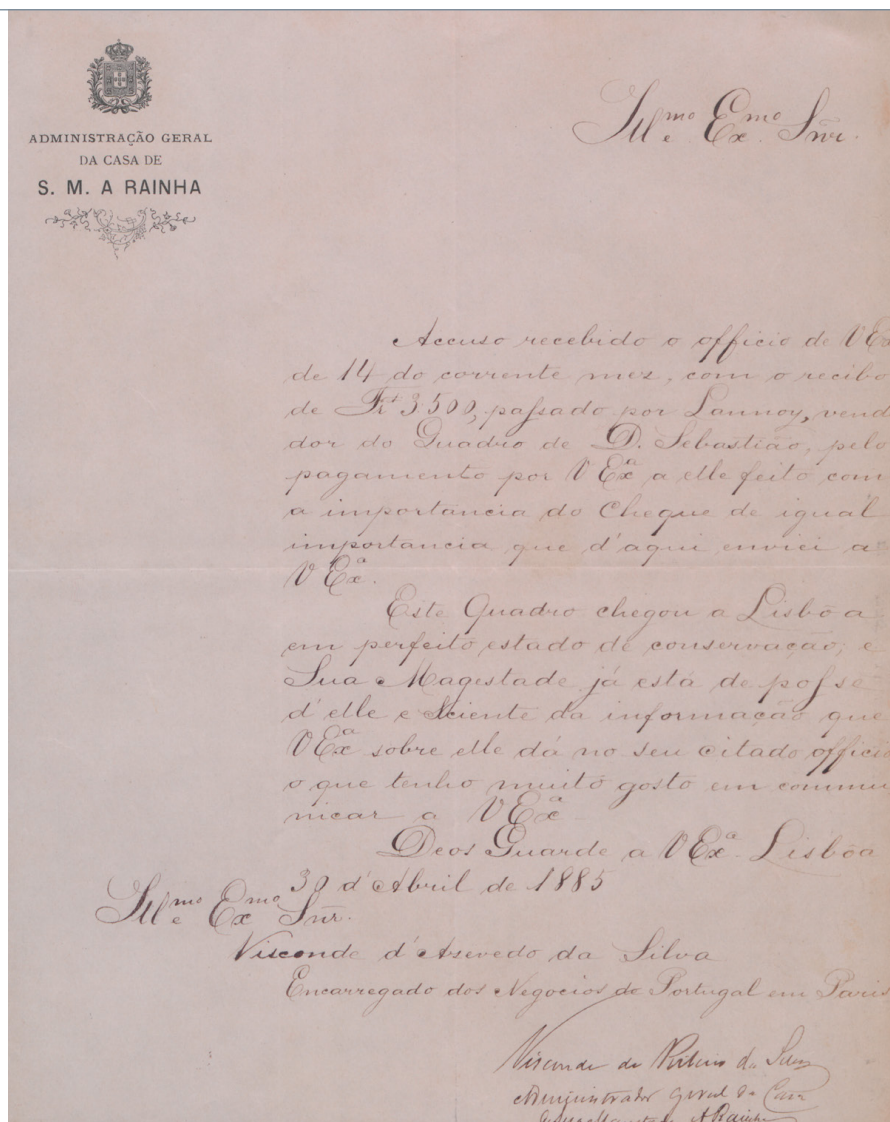 ADMINISTRAÇÃO GERAL
DA CASA DE
S. M. A RAINHA
Ill.mo e Ex.mo Snr.
Accuso recebido o officio de V Exa
de 14 do corrente mez, com o recibo
de Frs 3500, passado por Lannoy, vend
dor do Quadro de D. Sebastião, pelo
pagamento por V Exª a elle feito com
a importancia do Cheque de igual
importancia que d'aqui enviei a
V Exª.
Este Quadro chegou a Lisbôa
em perfeito estado de conservação; e
Sua Magestade já está de posse
d'elle e sciente da informação que
V Exª sobre elle dá no seu citado officio
o que tenho muito gosto em commu
nicar a V Exª
Deos Guarde a V Exª. Lisbôa
30 d'Abril de 1885
Ill.mo e Ex.mo Snr.
Visconde d'Azevedo da Silva
Encarregado dos Negocios de Portugal em Paris
Visconde de da
Administrador Geral da Casa
de Sua Magestade A Rainha